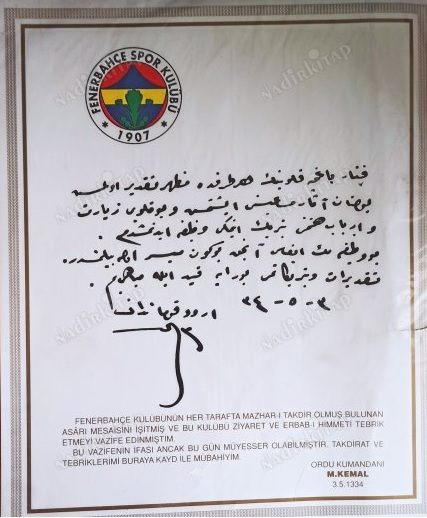 FENERBAHÇE SPOR KULÜBÜ
★ 1907 ★
فنار باغچه قلوبنك هر طرفده مظهر تقدير اولمش
بولنان آثار مساعيسنى ايشيتمش و بو قلوبى زيارت
و ارباب همتى تبريك ايتمكى وظيفه ايدنمشدم .
بو وظيفه نك ايفاسى آنجق بوكون ميسر اوله بيلمشدر .
تقديرات و تبريكاتمى بورايه قيد ايله مباهى يم .
٣ - ٥ - ٣٤ اردو قوماندانى
FENERBAHÇE KULÜBÜNÜN HER TARAFTA MAZHAR-I TAKDIR OLMUŞ BULUNAN
ASÂRI MESAİSİNİ İŞİTMİŞ VE BU KULÜBÜ ZİYARET VE ERBAB-I HİMMETİ TEBRİK
ETMEYİ VAZİFE EDİNMİŞTİM.
BU VAZİFENİN İFASI ANCAK BU GÜN MÜYESSER OLABİLMİŞTİR. TAKDİRAT VE
TEBRİKLERİMİ BURAYA KAYD İLE MÜBAHİYİM.
ORDU KUMANDANI
M.KEMAL
3.5.1334
NADİRKİTAP